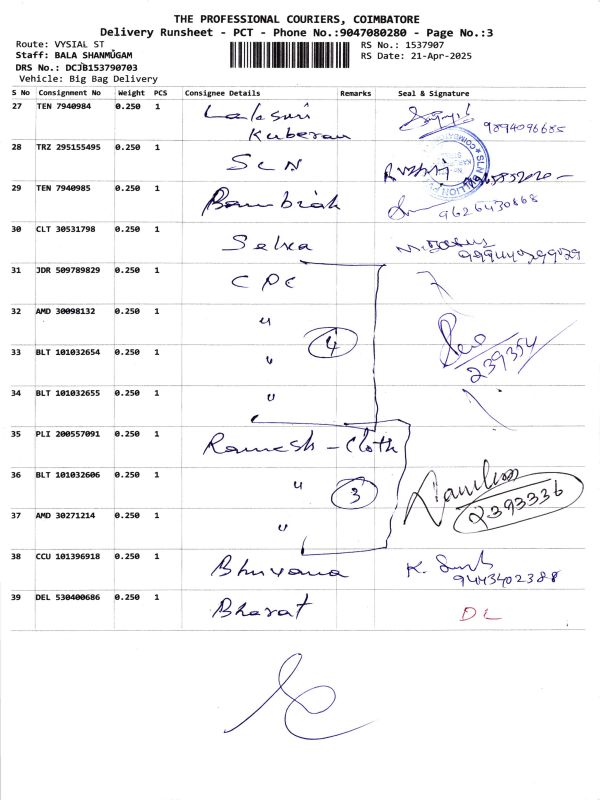 THE PROFESSIONAL COURIERS, COIMBATORE
Delivery Runsheet - PCT - Phone No.:9047080280 - Page No.:3
Route: VYSIAL ST
RS No.: 1537907
Staff: BALA SHANMUGAM
RS Date: 21-Apr-2025
DRS No.: DCJB153790703
Vehicle: Big Bag Delivery
S No Consignment No Weight PCS Consignee Details Remarks Seal & Signature
27 TEN 7940984 0.250 1 Laksuri
Kuberan 9894096685
28 TRZ 295155495 0.250 1 SLN
29 TEN 7940985 0.250 1 9626430868
30 CLT 30531798 0.250 1 Selva
31 JDR 509789829 0.250 1 CPC
32 AMD 30098132 0.250 1 "
33 BLT 101032654 0.250 1 " 4 239354
34 BLT 101032655 0.250 1 "
35 PLI 200557091 0.250 1 Ramesh - Cloth
36 BLT 101032606 0.250 1 " 3 2393336
37 AMD 30271214 0.250 1 "
38 CCU 101396918 0.250 1 Bhuvana K. 9443402388
39 DEL 530400686 0.250 1 Bharat DL